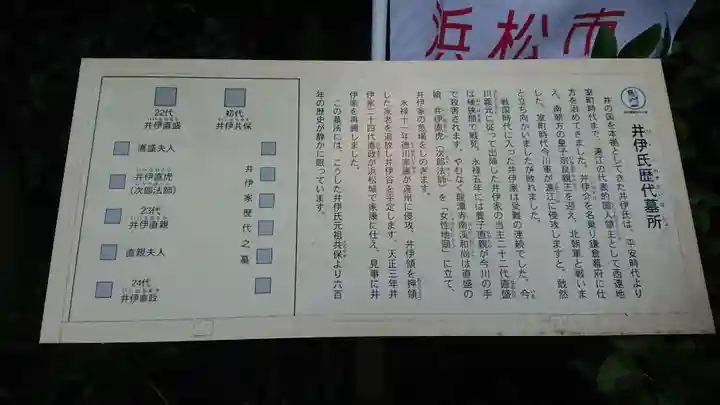 浜松市
井伊氏歴代墓所
井の国を本拠としてきた井伊氏は、平安時代より
室町時代まで、遠江の代表的国人領主として西遠地
方を治めてきました。井伊介を名乗り鎌倉幕府に仕
え、南朝方の皇子宗良親王を迎え、北朝軍と戦いま
した。室町時代今川軍が遠江に侵攻しますと、敢然
と立ち向かいましたが敗れました。
戦国時代に入った井伊家は受難の連続でした。今
川義元に従って出陣した井伊家の当主二十二代直盛
は桶狭間で戦死。永禄五年には養子直親が今川の手
で殺害されます。やむなく龍潭寺南渓和尚は直盛の
娘、井伊直虎(次郎法師)を「女性地頭」に立て、
井伊家の急場をしのぎます。
永禄十一年徳川家康が遠州に侵攻、井伊領を押領
した家老を追放し井伊谷を平定します。天正三年井
伊家二十四代直政が浜松城で家康に仕え、見事に井
伊家を再興しました。
この墓所には、こうした井伊氏元祖共保より六百
年の歴史が静かに眠っています。
22代
井伊直盛
初代
井伊共保
直盛夫人
井伊直虎
(次郎法師)
23代
井伊直親
直親夫人
24代
井伊直政
井伊家歴代之墓